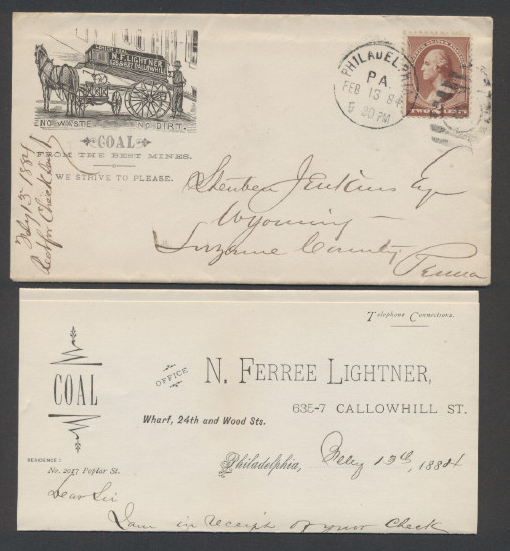 N. F. LIGHTNER
CALLOWHILL
NO WASTE. NO DIRT.
COAL
FROM THE BEST MINES.
WE STRIVE TO PLEASE.
Feby 13 1884
Rect for Check
PHILADELPHIA
PA.
FEB 13 84
5 30 PM
TWO CENTS
Steuben Jenkins Esq
Wyoming
Luzerne County
Penna
Telephone Connections.
COAL
OFFICE
N. FERREE LIGHTNER,
635-7 CALLOWHILL ST.
Wharf, 24th and Wood Sts.
Philadelphia, Feby 13th, 1884
RESIDENCE:
No. 2017 Poplar St.
Dear Sir
I am in receipt of your Check